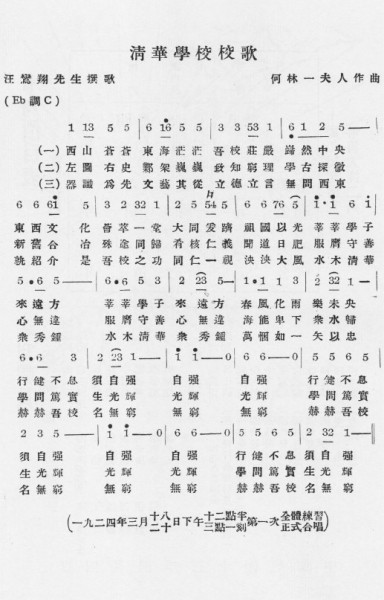 清華學校校歌
汪鸞翔先生撰歌 何林一夫人作曲
(Eb調C)
1 13 5 5 6 16 5 5 3 3 53 1 6 1 2 5 —
(一)西山蒼蒼 東海茫茫 吾校莊嚴 巋然中央
(二)左圖右史 鄴架巍巍 致知窮理 學古探微
(三)器識為先 文藝其從 立德立言 無問西東
6 6 61 5 3 2 1 2 5 54 5 6 6 76 1·1 6 1
東西文化 薈萃一堂 大同爰躋 祖國以光 莘莘學子
新舊合冶 殊途同歸 肴核仁義 聞道日肥 服膺守善
孰紹介是 吾校之功 同仁一視 泱泱大風 水木清華
5·6 5 — 3·3 2 3 5·6 5 — 1·1 (23) 5 — 2 32 1 —
來遠方 莘莘學子 來遠方 春風化雨 樂未央
心無違 服膺守善 心無違 海能卑下 衆水歸
衆秀鍾 水木清華 衆秀鍾 萬悃如一 矢以忠
6·6 3 2 23 1 — 1 — 0 6 6 — 0 1·1 6 5
行健不息 須自强 自强 自强 行健不息
學問篤實 生光輝 光輝 光輝 學問篤實
赫赫吾校 名無窮 無窮 無窮 赫赫吾校
2 3 5 — 1 — 0 6 6 — 0 5·5 6 5 2 32 1 —
須自强 自强 自强 行健不息 須自强
生光輝 光輝 光輝 學問篤實 生光輝
名無窮 無窮 無窮 赫赫吾校 名無窮
(一九二四年三月十八二十日下午十二點半三點一刻第一次全體練習正式合唱)